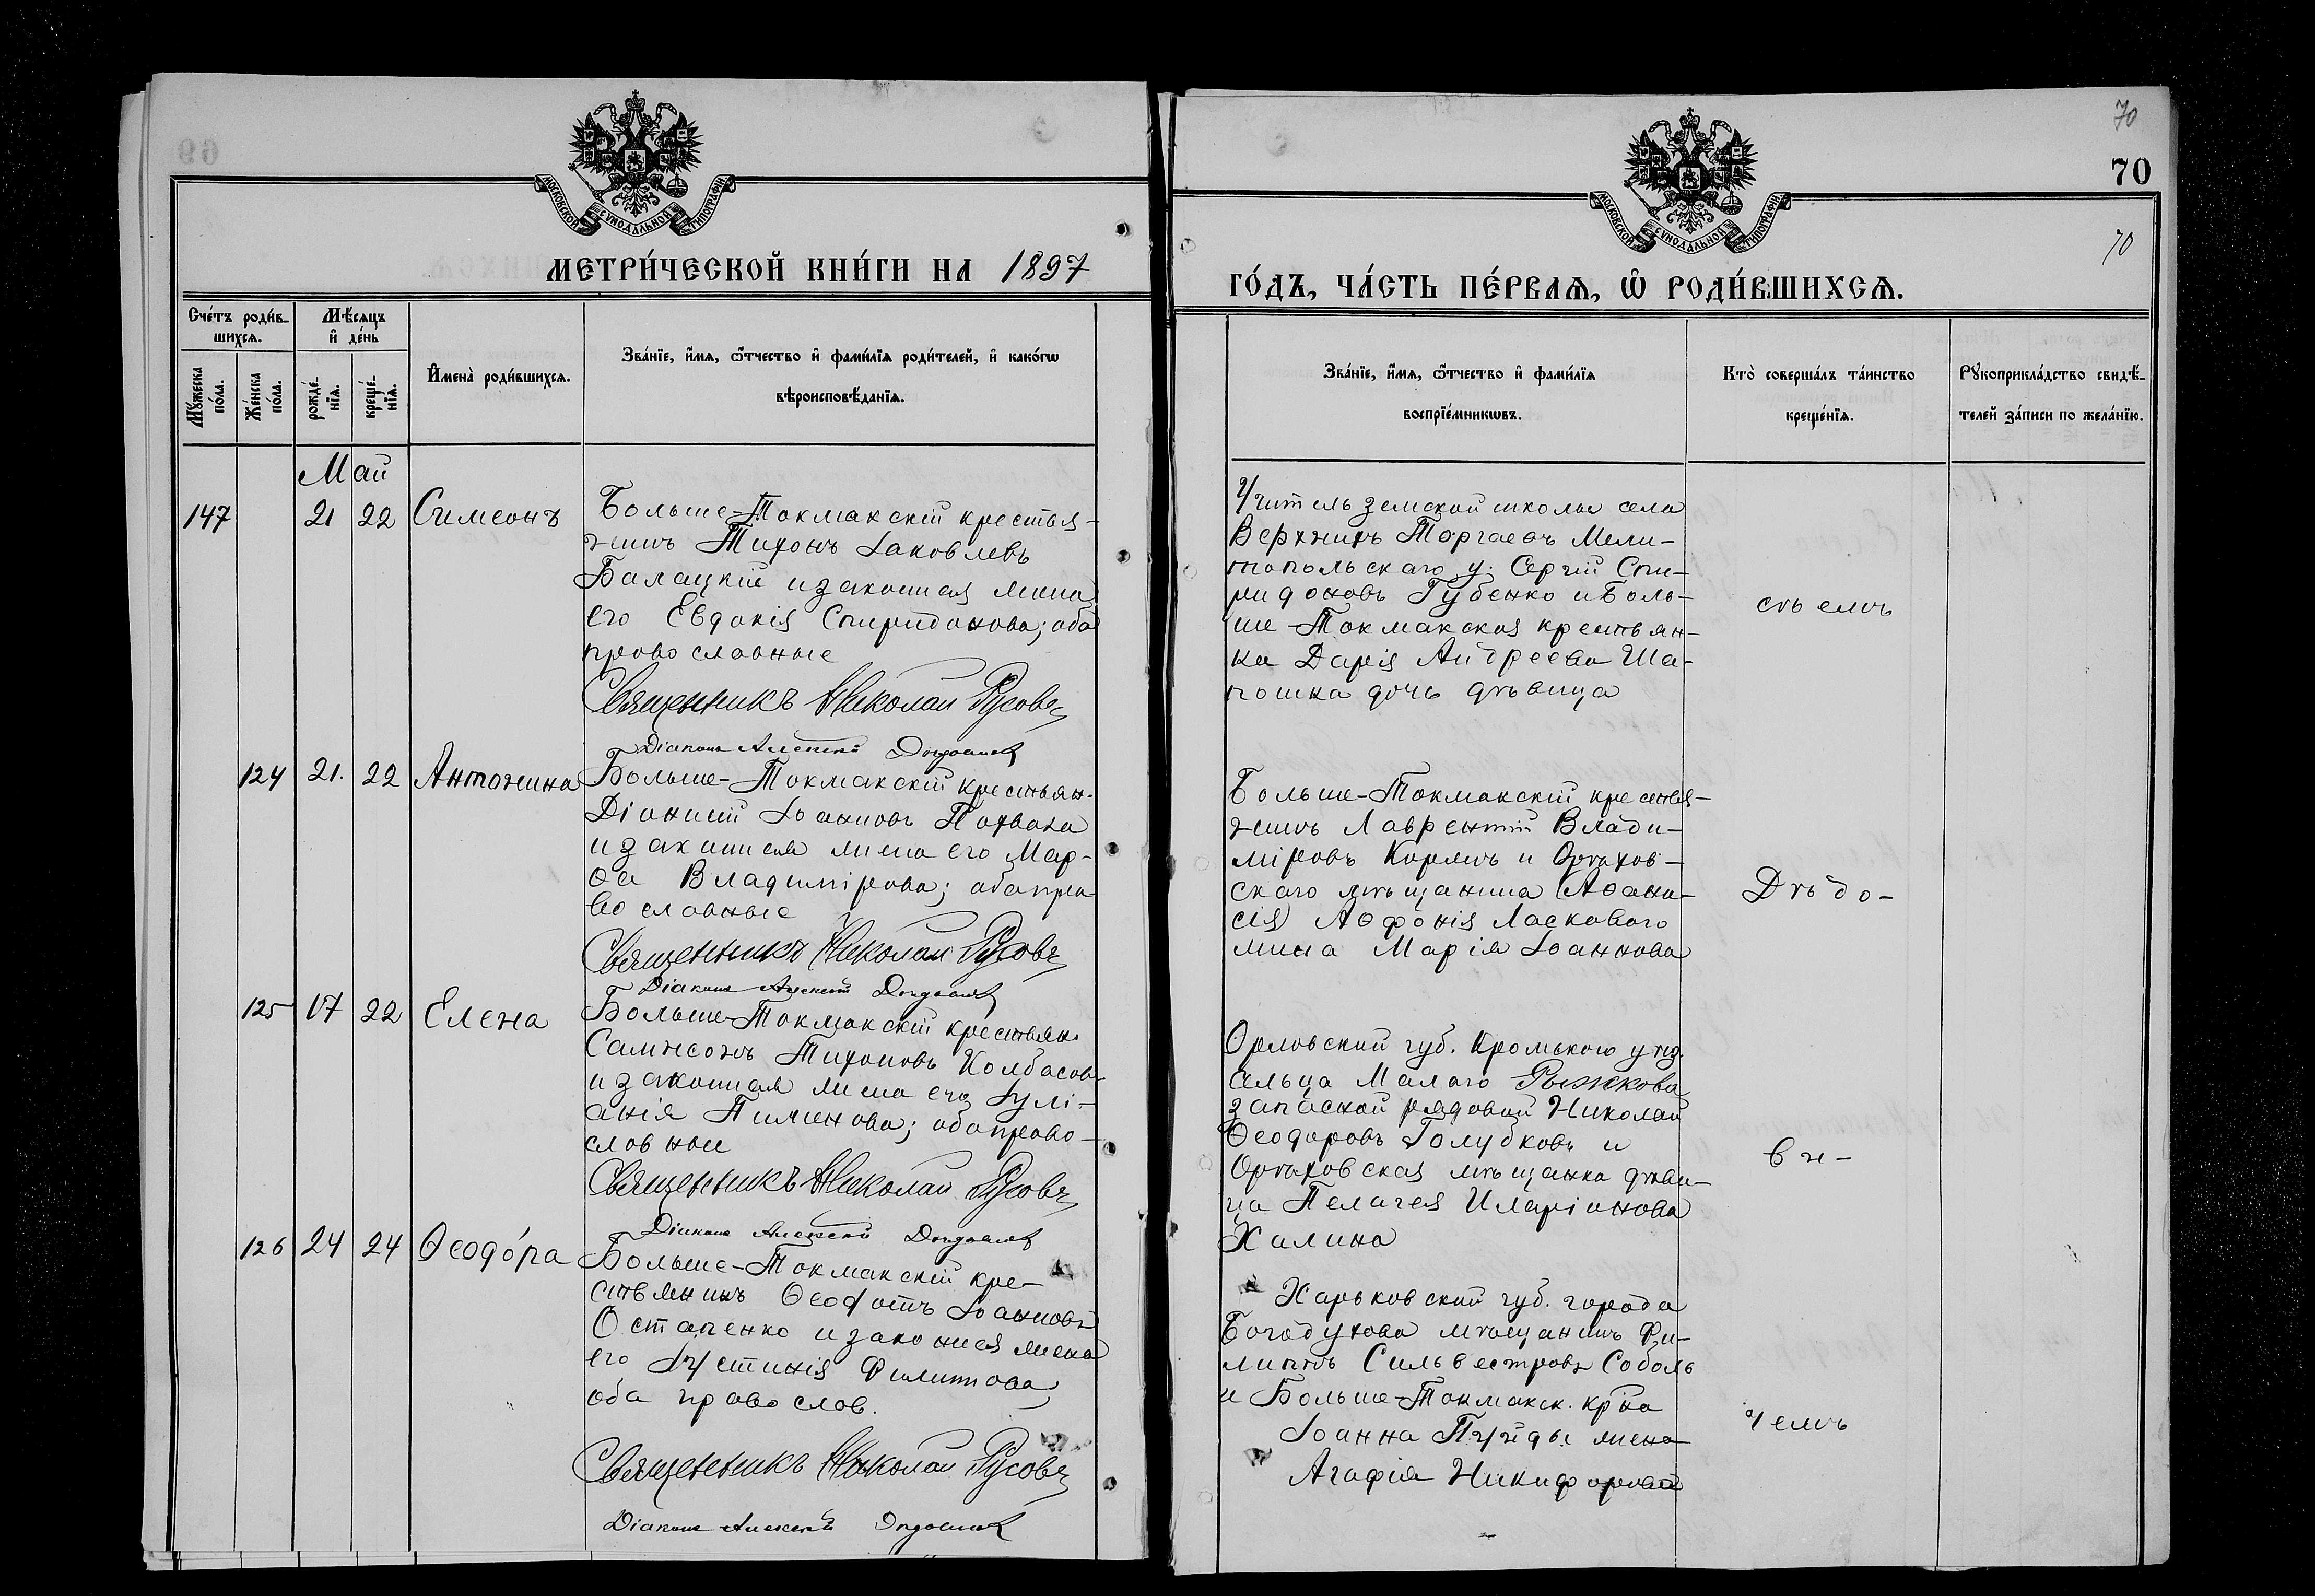 69
МОСКОВСКОЙ СѴНОДАЛЬНОЙ ТИПОГРАФІИ
МЕТРИ́ЧЕСКОЙ КНИ́ГИ НА 1897
Сче́тъ роди́в-
шихсѧ.
Мѣ́сѧцъ
и҆ де́нь
Мꙋ́жеска
по́ла.
Же́нска
по́ла.
рожде́-
нїѧ.
креще́-
нїѧ.
И҆мена̀ роди́вшихсѧ.
Зва́нїе, и҆́мѧ, ѻ҆́тчество и҆ фами́лїѧ роди́телей, и҆ како́гѡ
вѣроисповѣ́данїѧ.
Май
147 21 22 Симеонъ
Больше-Токмакскій крестья-
нинъ Тихонъ Іаковлевъ
Балацкій и законная жена
его Евдокія Спиридонова; оба
православные
Священникъ Николай Русовъ
Діаконъ Алексѣй
124 21. 22 Антонина
Больше-Токмакскій крестьян.
Діонисій Іоанновъ Похвала
и законная жена его Мар-
ѳа Владимірова; оба пра-
вославные
Священникъ Николай Русовъ
Діаконъ Алексѣй
125 17 22 Елена
Больше-Токмакскій крестьян.
Сампсонъ Тихоновъ Колбасов
и законная жена его Іулі-
анія Пименова; оба право-
славные
Священникъ Николай Русовъ
Діаконъ Алексѣй
126 24 24 Ѳеодо́ра
Больше-Токмакскій кре-
стьянинъ Ѳеодотъ Іоанновъ
Остапенко и законная жена
его Іустинія Филиппова;
оба правослов.
Священникъ Николай Русовъ
Діаконъ Алексѣй
70
70
МОСКОВСКОЙ СѴНОДАЛЬНОЙ ТИПОГРАФІИ
70
ГО́ДЪ, ЧА́СТЬ ПЕ́РВАѦ, Ѿ РОДИ́ВШИХСѦ.
Зва́нїе, и҆́мѧ, ѻ҆́тчество и҆ фами́лїѧ
воспрїе́мникѡвъ.
Кто̀ соверша́лъ та́инство
креще́нїѧ.
Рꙋкоприкла́дство свидѣ́-
телей за́писи по жела́нїю.
Учитель земской школы села
Верхнихъ Торгаевъ Мели-
топольскаго у. Сергій Спи-
ридоновъ Губенко и Боль-
ше-Токмакская крестьян-
ка Дарія Андреева Ша-
пошка дочь дѣвица
Больше-Токмакскій крестья-
нинъ Лаврентій Влади-
міровъ и Орѣхов-
скаго мѣщанина (Аѳана-
сія) Аѳѳонія Ласкового
жена Марія Іоаннова
Орловской губ. Кромского уѣз.
сельца Малаго Рыжкова
запасной рядовой Николай
Ѳеодоровъ Голубковъ и
Орѣховская мѣщанка дѣви-
ца Пелагея Иларіонова
Халина
Харьковской губ. города
Богодухова мѣщанинъ Фи-
липпъ Сильвестровъ Соболь
и Больше-Токмакск. кр̃на
Іоанна жена
Агафія Никифорова